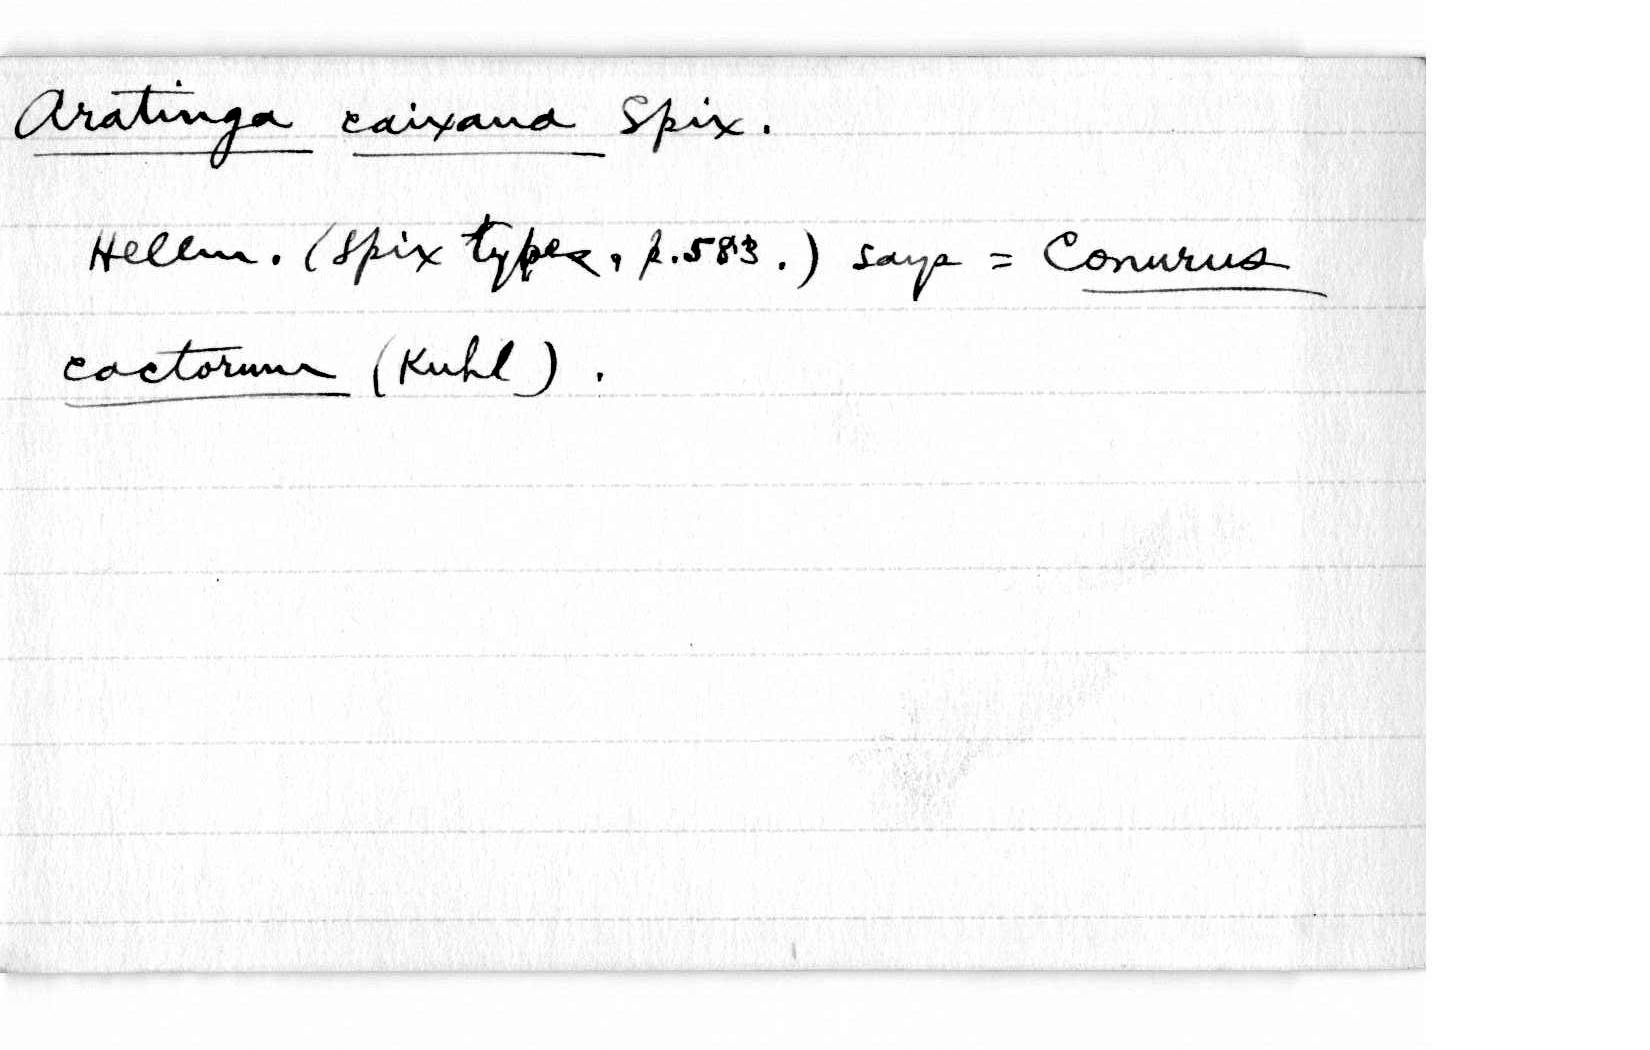 Aratinga caixana Spix.
Hellm. (Spix types, p. 583.) says = Conurus
cactorum (Kuhl).